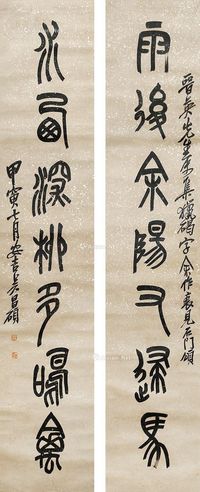 雨後余陽又歸馬
晉奐先生屬集獵碣字余作衺見石門頌
水西深柳多鳴禽
甲寅七月安吉吳昌碩